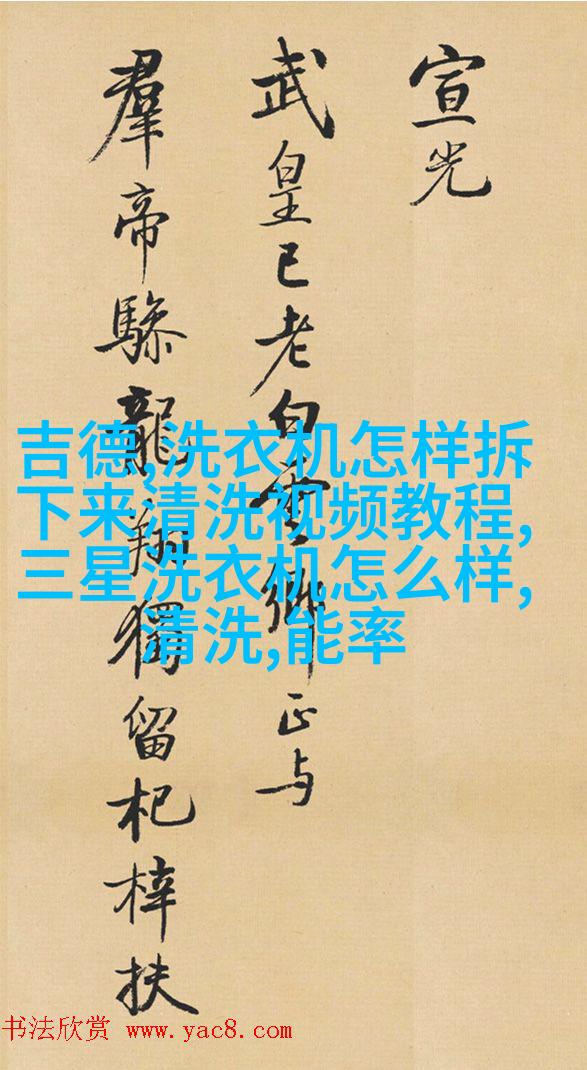 宣光
武皇已老白雲鄉正与
羣帝驂龍翔獨留杞梓扶
吉德,洗衣机怎样拆
下来清洗视频教程,
三星洗衣机怎么样,
清洗,能率
书法欣赏 www.yac8.com